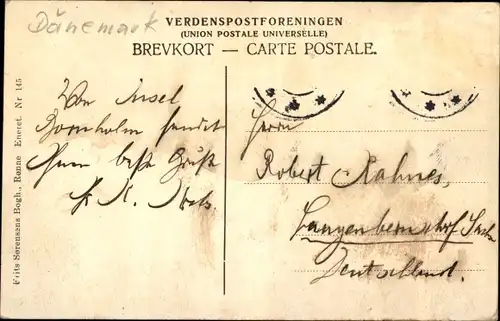 Dänemark
VERDENSPOSTFORENINGEN
(UNION POSTALE UNIVERSELLE)
BREVKORT — CARTE POSTALE.
Von Insel
Bornholm sendet
Ihnen beste Grüße
Fr. K.
Herrn
Robert Rahnes,
Langenbernsdorf Sach
Deutschland.
Frits Sørensens Bogh., Rønne Eneret. Nr 145